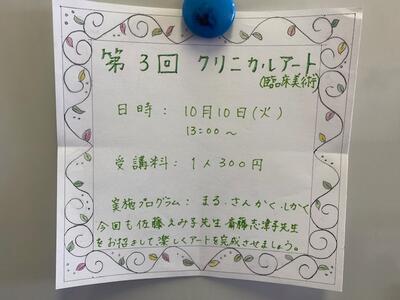 第3回 クリニカルアート
(臨床美術)
日時： 10月10日(火)
13:00〜
受講料： 1人300円
実施プログラム： まる、さんかく、しかく
今回も佐藤えみ子先生 斎藤志津子先生
をお招きして楽しくアートを完成させましょう。